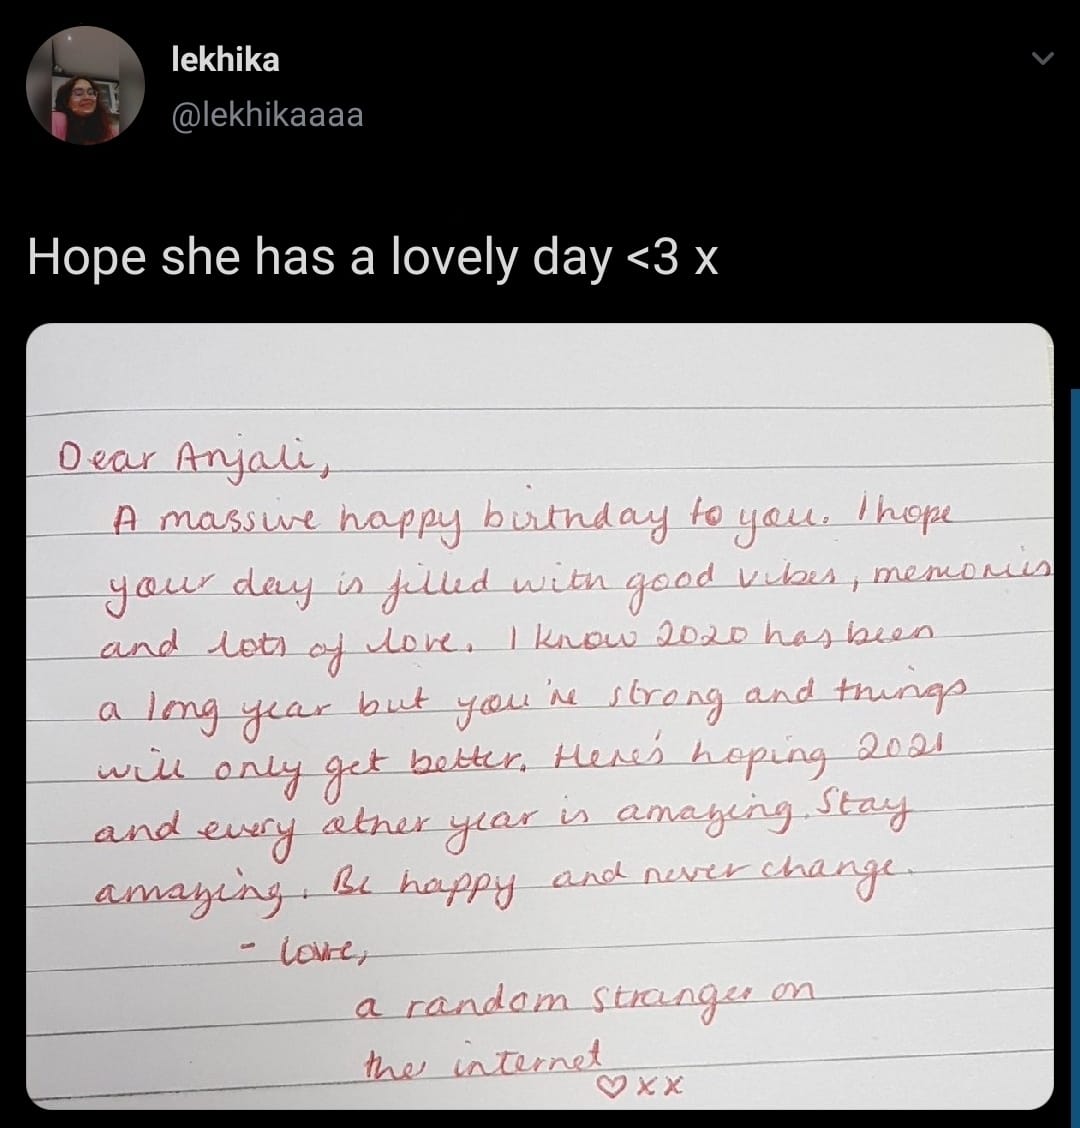 lekhika
@lekhikaaaa
Hope she has a lovely day <3 x
Dear Anjali,
A massive happy birthday to you. I hope
your day is filled with good vibes, memories
and lots of love. I know 2020 has been
a long year but you're strong and things
will only get better. Here's hoping 2021
and every other year is amazing. Stay
amazing. Be happy and never change.
- Love,
a random stranger on
the internet
♡xx